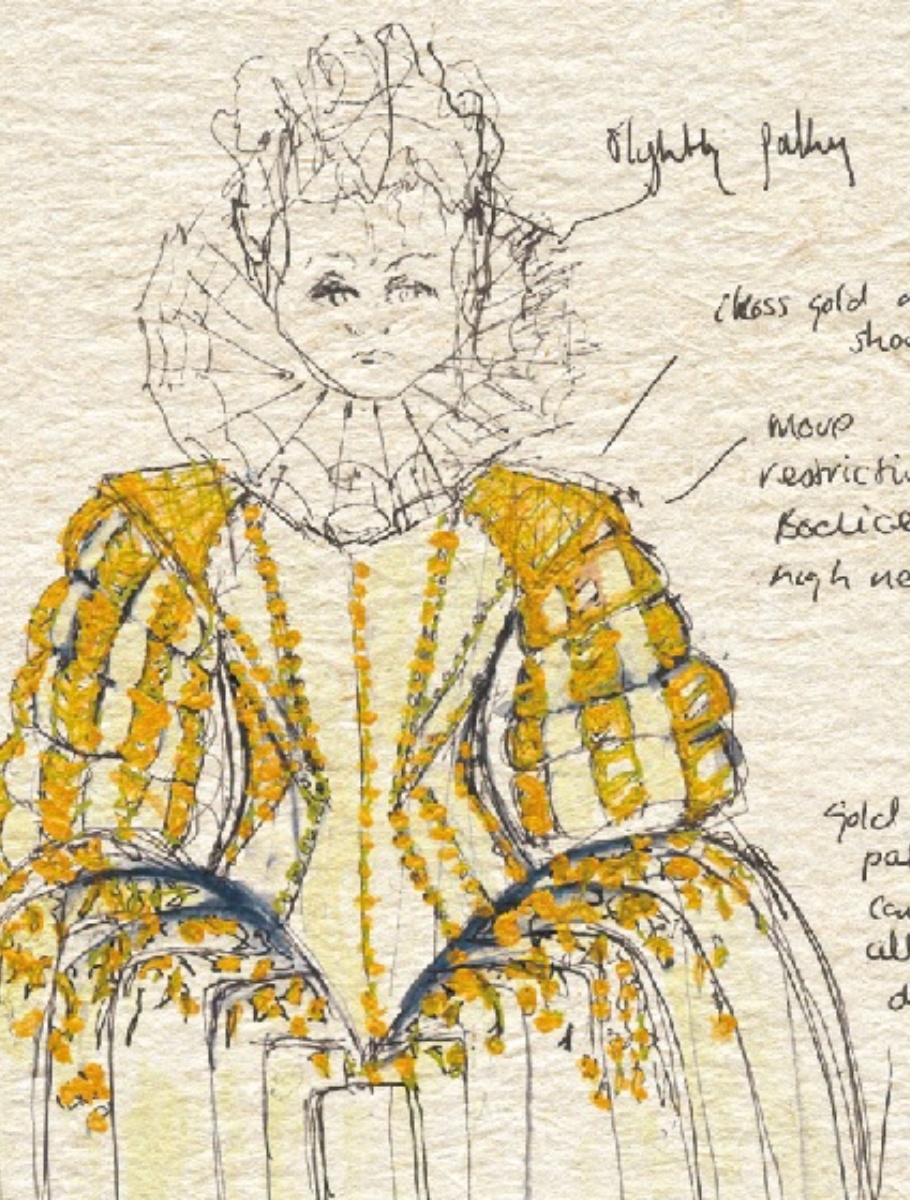 Slightly
gold
shoo
move
restricti
Bodice
high ne
Gold
pa
ca
all
d